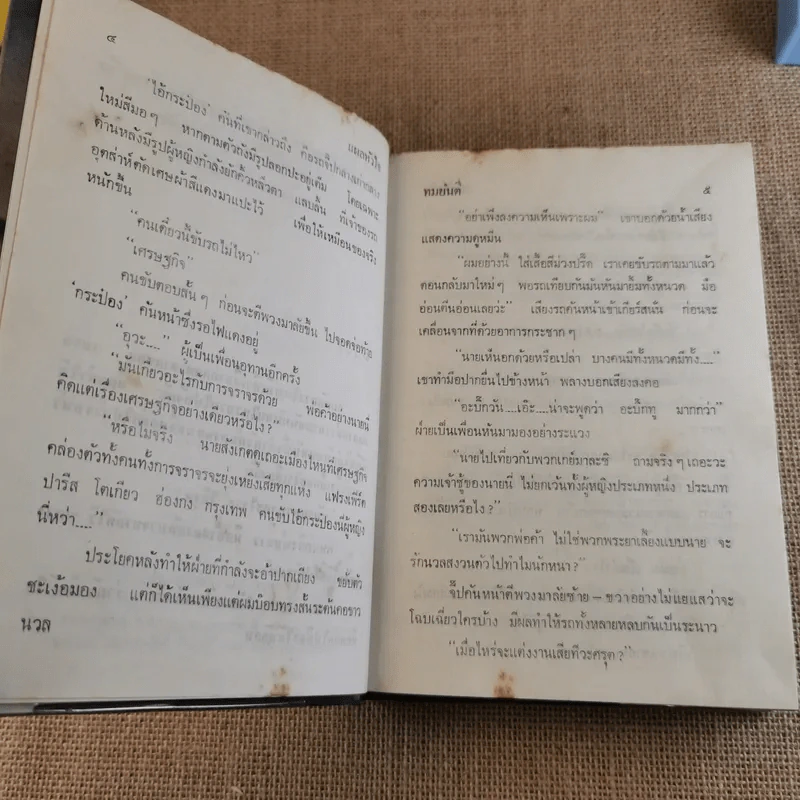 ๔
แผลหัวใจ
‘ไอ้กระป๋อง’ คันที่เขากล่าวถึง คือรถจี๊ปกลางเก่ากลาง
ใหม่สีมอๆ หากตามตัวถังมีรูปลอกปะอยู่เต็ม โดยเฉพาะ
ด้านหลังมีรูปผู้หญิงกำลังยักคิ้วหลิ่วตา แลบลิ้น ที่เจ้าของรถ
อุตส่าห์ตัดเศษผ้าสีแดงมาแปะไว้ เพื่อให้เหมือนของจริง
หนักขึ้น
“คนเดี๋ยวนี้ขับรถไม่ไหว”
“เศรษฐกิจ”
คนขับตอบสั้นๆ ก่อนจะตีพวงมาลัยขึ้น ไปจอดจ่อท้าย
‘กระป๋อง’ คันหน้าซึ่งรอไฟแดงอยู่
“อุวะ....” ผู้เป็นเพื่อนอุทานอีกครั้ง
“มันเกี่ยวอะไรกับการจราจรด้วย พ่อค้าอย่างนายนี่
คิดแต่เรื่องเศรษฐกิจอย่างเดียวหรือไง?”
“หรือไม่จริง นายสังเกตดูเถอะเมืองไหนที่เศรษฐกิจ
คล่องตัวทั้งคนทั้งการจราจรจะยุ่งเหยิงเสียทุกแห่ง แฟรงเฟิร์ต
ปารีส โตเกียว ฮ่องกง กรุงเทพ คนขับไอ้กระป๋องนี่ผู้หญิง
นี่หว่า....”
ประโยคหลังทำให้ฝ่ายที่กำลังจะอ้าปากเถียง ขยับตัว
ชะเง้อมอง แต่ก็ได้เห็นเพียงแต่ผมบ๊อบทรงสั้นระต้นคอขาว
นวล
ทมยันตี
๕
“อย่าเพิ่งลงความเห็นเพราะผม” เขาบอกด้วยน้ำเสียง
แสดงความดูหมิ่น
“ผมอย่างนี้ ใส่เสื้อสีม่วงปรี๊ด เราเคยขับรถตามมาแล้ว
ตอนกลับมาใหม่ๆ พอรถเทียบกันมันหันมายิ้มทั้งหนวด มือ
อ่อนตีนอ่อนเลยว่ะ” เสียงรถคันหน้าเข้าเกียร์สนั่น ก่อนจะ
เคลื่อนจากที่ด้วยอาการกระชากๆ
“นายเห็นอกด้วยหรือเปล่า บางคนมีทั้งหนวดมีทั้ง....”
เขาทำมือปากยื่นไปข้างหน้า พลางบอกเสียงลงคอ
“อะบิ๊กวัน....เอ๊ะ....น่าจะพูดว่า อะบิ๊กทู มากกว่า”
ฝ่ายเป็นเพื่อนหันมามองอย่างระแวง
“นายไปเที่ยวกับพวกเกย์มาละซิ ถามจริงๆ เถอะวะ
ความเจ้าชู้ของนายนี่ ไม่ยกเว้นทั้งผู้หญิงประเภทหนึ่ง ประเภท
สองเลยหรือไง?”
“เรามันพวกพ่อค้า ไม่ใช่พวกพระยาเลี้ยงแบบนาย จะ
รักนวลสงวนตัวไปทำไมนักหนา?”
จี๊ปคันหน้าตีพวงมาลัยซ้าย–ขวาอย่างไม่แยแสว่าจะ
โฉบเฉี่ยวใครบ้าง มีผลทำให้รถทั้งหลายหลบกันเป็นระนาว
“เมื่อไหร่จะแต่งงานเสียทีวะศรุต?”